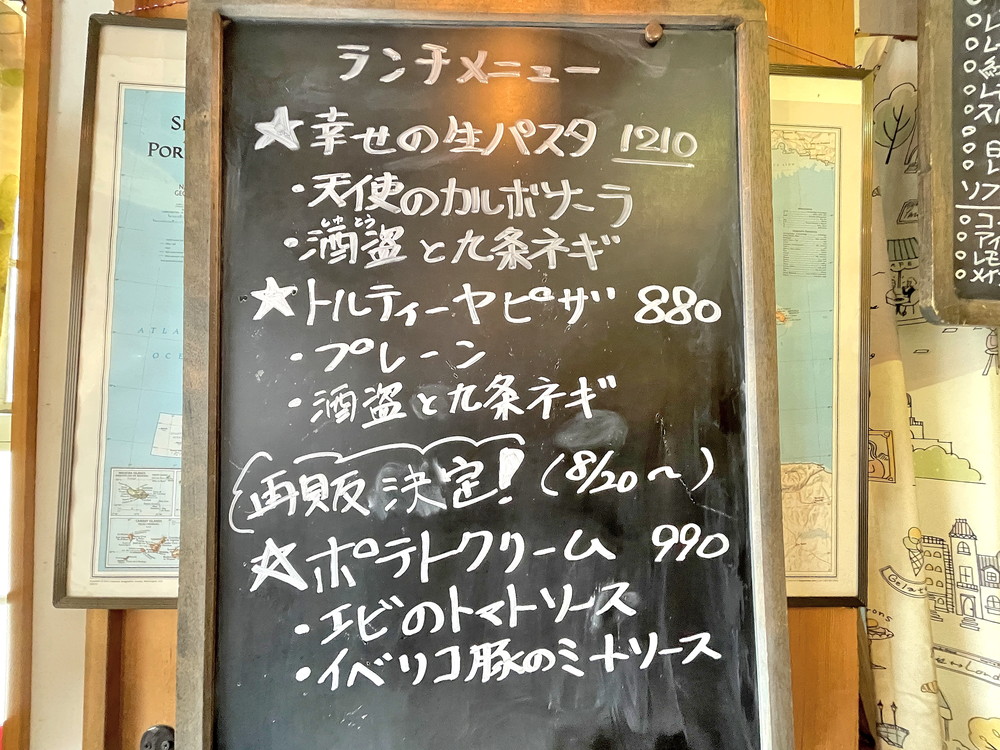 ランチメニュー
★幸せの生パスタ 1210
・天使のカルボナーラ
しゅとう
・酒盗と九条ネギ
★トルティーヤピザ 880
・プレーン
・酒盗と九条ネギ
再販決定! (8/20〜)
★ポテトクリーム 990
・エビのトマトソース
・イベリコ豚のミートソース
ATLA
OCE
Gelat
Lond